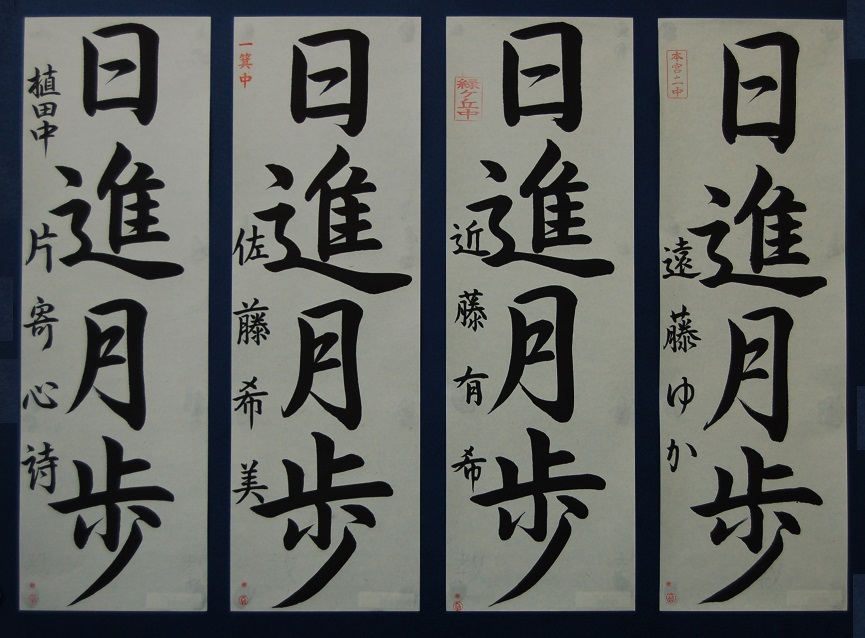 日進月歩
植田中 片寄心詩
日進月歩
一箕中
佐藤希美
日進月歩
緑ケ丘中
近藤有希
日進月歩
本宮二中
遠藤ゆか